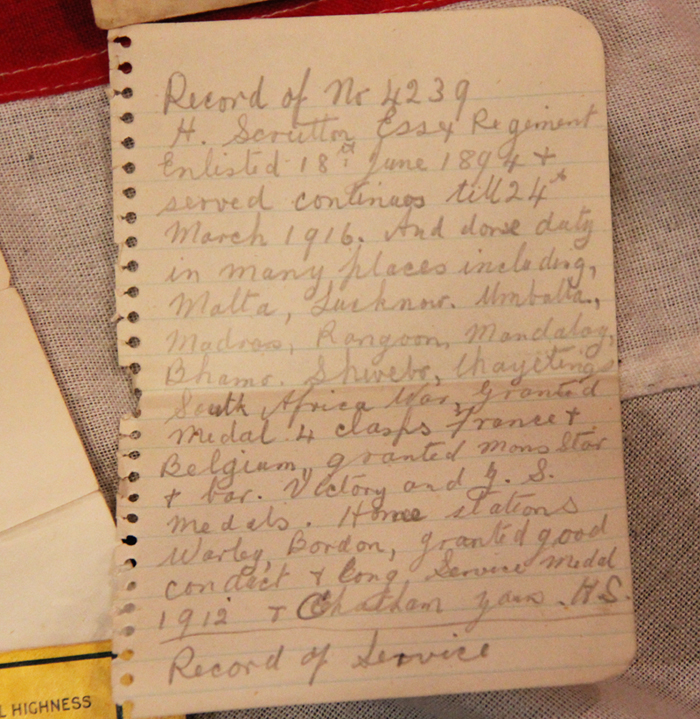 Record of No 4239
H. Scrutton Essex Regiment
Enlisted 18st June 1894 +
served continues till 24th
March 1916. And done duty
in many places including,
Malta, Lucknow. Umballa,
Madras, Rangoon, Mandalay,
Bhamo. Shwebo, Thayetings
South Africa War, Granted
Medal 4 clasps France +
Belgium, granted Mons Star
+ bar. Victory and G. S.
Medals. Home stations
Warley, Bordon, granted good
conduct + long Service Medal
1912 + Chatham yours. H.S.
Record of Service
L HIGHNESS